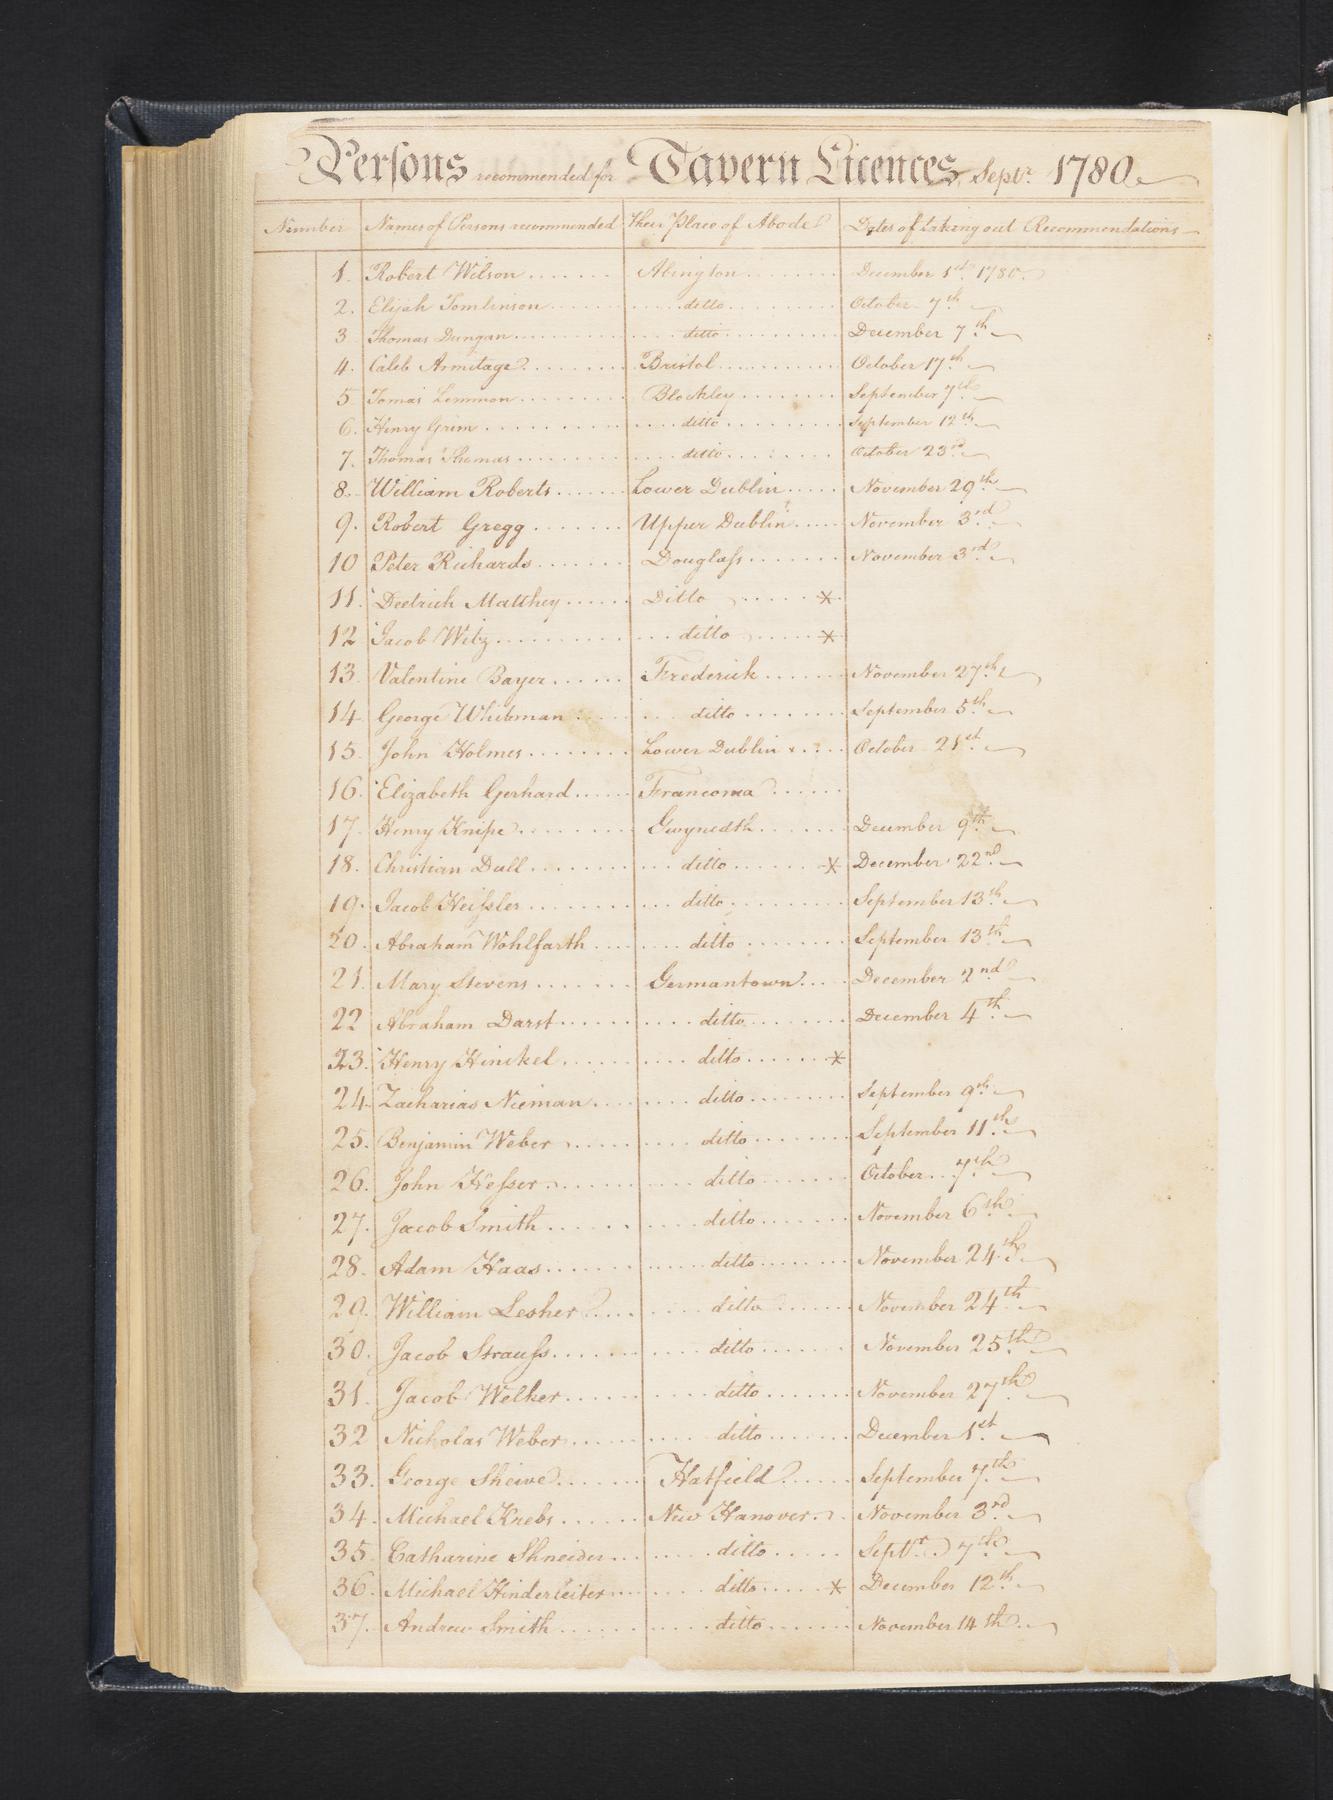 Persons recommended for Tavern Licences, Septr. 1780.
Number Names of Persons recommended Their Place of Abode Dates of taking out Recommendations
1. Robert Wilson Abington December 1st 1780.
2. Elijah Tomlinson ditto October 7th
3 Thomas Dungan ditto December 7th
4. Caleb Armitage Bristol October 17th
5 Tomas Lemmon Blockley September 7th
6. Henry Grim ditto September 12th
7. Thomas Thomas ditto October 23rd
8. William Roberts Lower Dublin November 29th
9. Robert Gregg Upper Dublin November 3rd
10 Peter Richards Douglass November 3rd
11. Deetrich Matthey Ditto *
12 Jacob Witz ditto *
13. Valentine Bayer Frederick November 27th
14 George Whitman ditto September 5th
15. John Holmes Lower Dublin x October 21st
16. Elizabeth Gerhard Franconia
17. Henry Knipe Gwynedth December 9th
18. Christian Dull ditto * December 22nd
19. Jacob Heissler ditto September 13th
20. Abraham Wohlfarth ditto September 13th
21. Mary Stevens Germantown December 2nd
22 Abraham Darst ditto December 4th
23. Henry Hinckel ditto *
24. Zacharias Nieman ditto September 9th
25. Benjamin Weber ditto September 11th
26. John Hesser ditto October 7th
27. Jacob Smith ditto November 6th
28. Adam Haas ditto November 24th
29. William Lesher ditto November 24th
30. Jacob Strauss ditto November 25th
31. Jacob Welker ditto November 27th
32 Nicholas Weber ditto December 1st
33. George Sheive Hatfield September 7th
34. Michael Krebs New Hanover November 3rd
35. Catharine Shneider ditto Septr. 7th
36. Michael Hinderleiter ditto * December 12th
37. Andrew Smith ditto November 14th